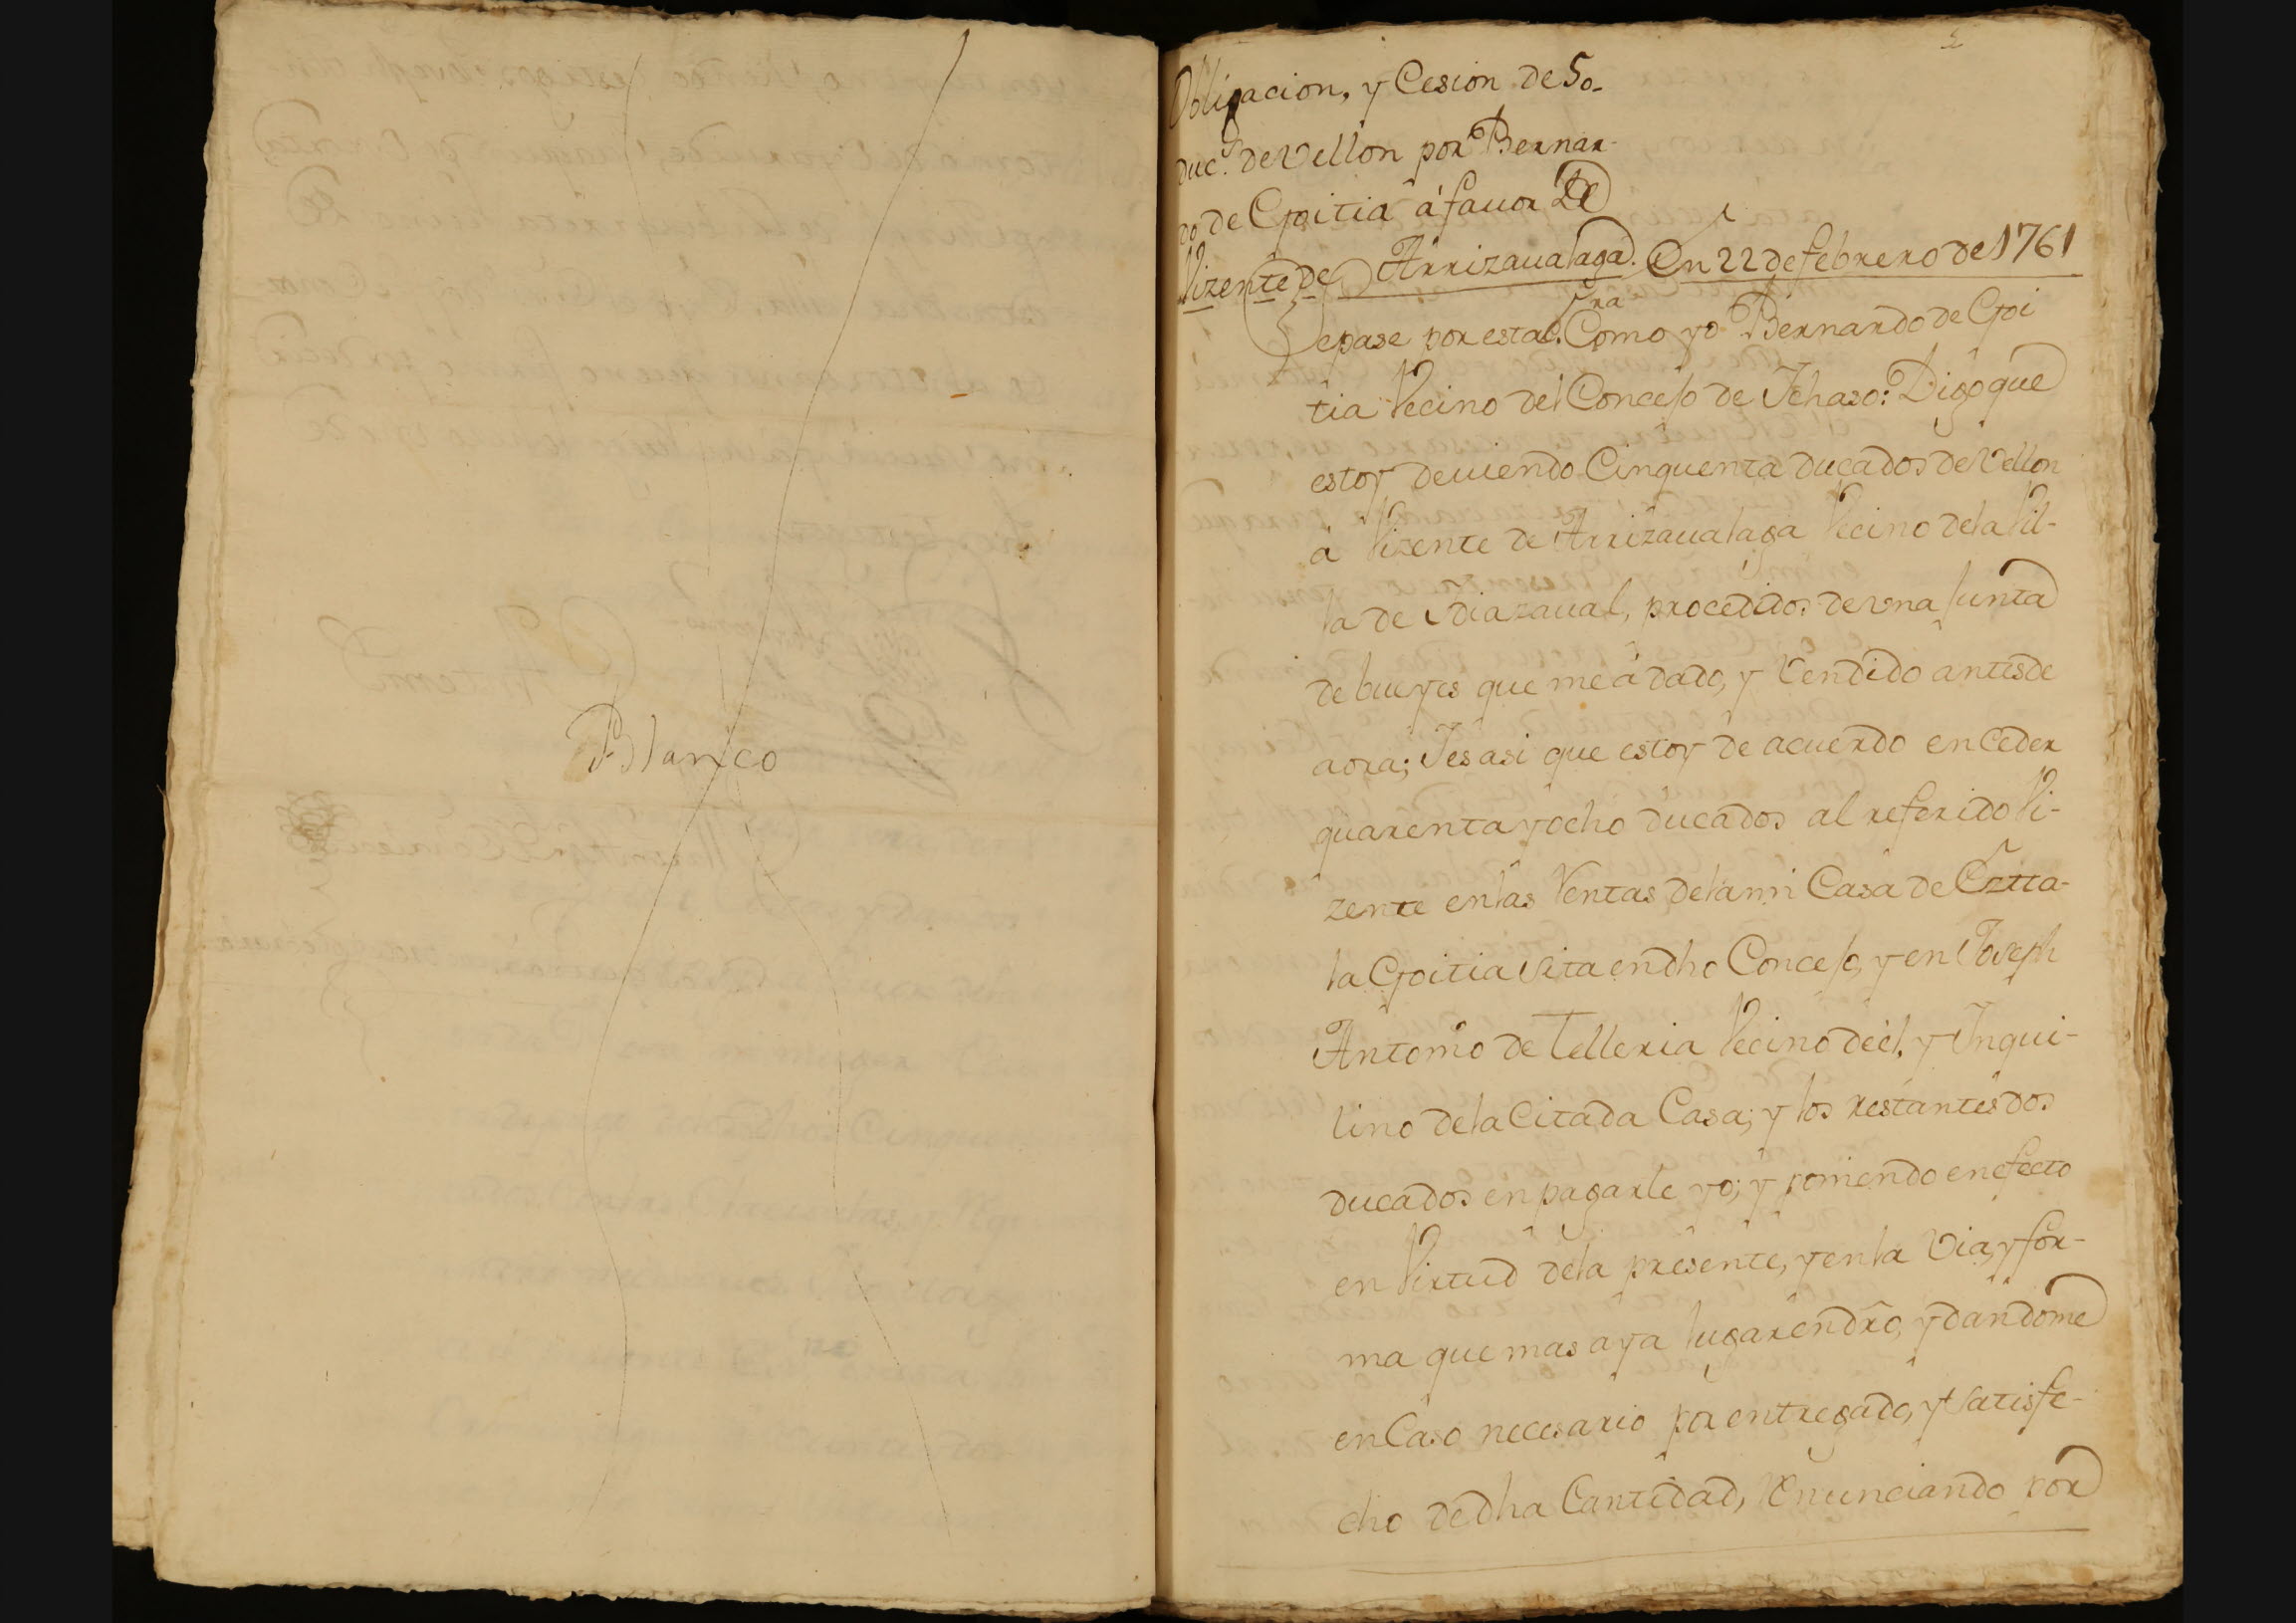 Blanco
Obligacion, y Cesion de 50.
duc.s de Vellon por Bernar-
do de Goitia á fauor de
Vizente de Arrizaualaga. En 22 de febrero de 1761
Sepase por esta Cra Como yo Bernardo de Goi
tia Vecino del Concejo de Ichaso: Digo que
estoy deuiendo Cinquenta ducados de Vellon
à Vizente de Arrizaualaga Vecino de la Vil-
la de Idiazaual, procedidos de vna Junta
de bueyes que me á dado, y Vendido antes de
aora; Y es asi que estoy de acuerdo en Ceder
quarenta y ocho ducados al referido Vi-
zente en las Rentas de la mi Casa de
la Goitia sita en dho Concejo, y en Joseph
Antonio de Telleria Vecino de él, y Inqui-
lino de la Citada Casa; y los restantes dos
ducados en pagarle yo; y poniendo en efecto
en Virtud de la presente, y en la Via, y for-
ma que mas aya lugar en dro, y dandome
en Caso necesario por entregado, y satisfe-
cho de dha Cantidad, Renunciando por